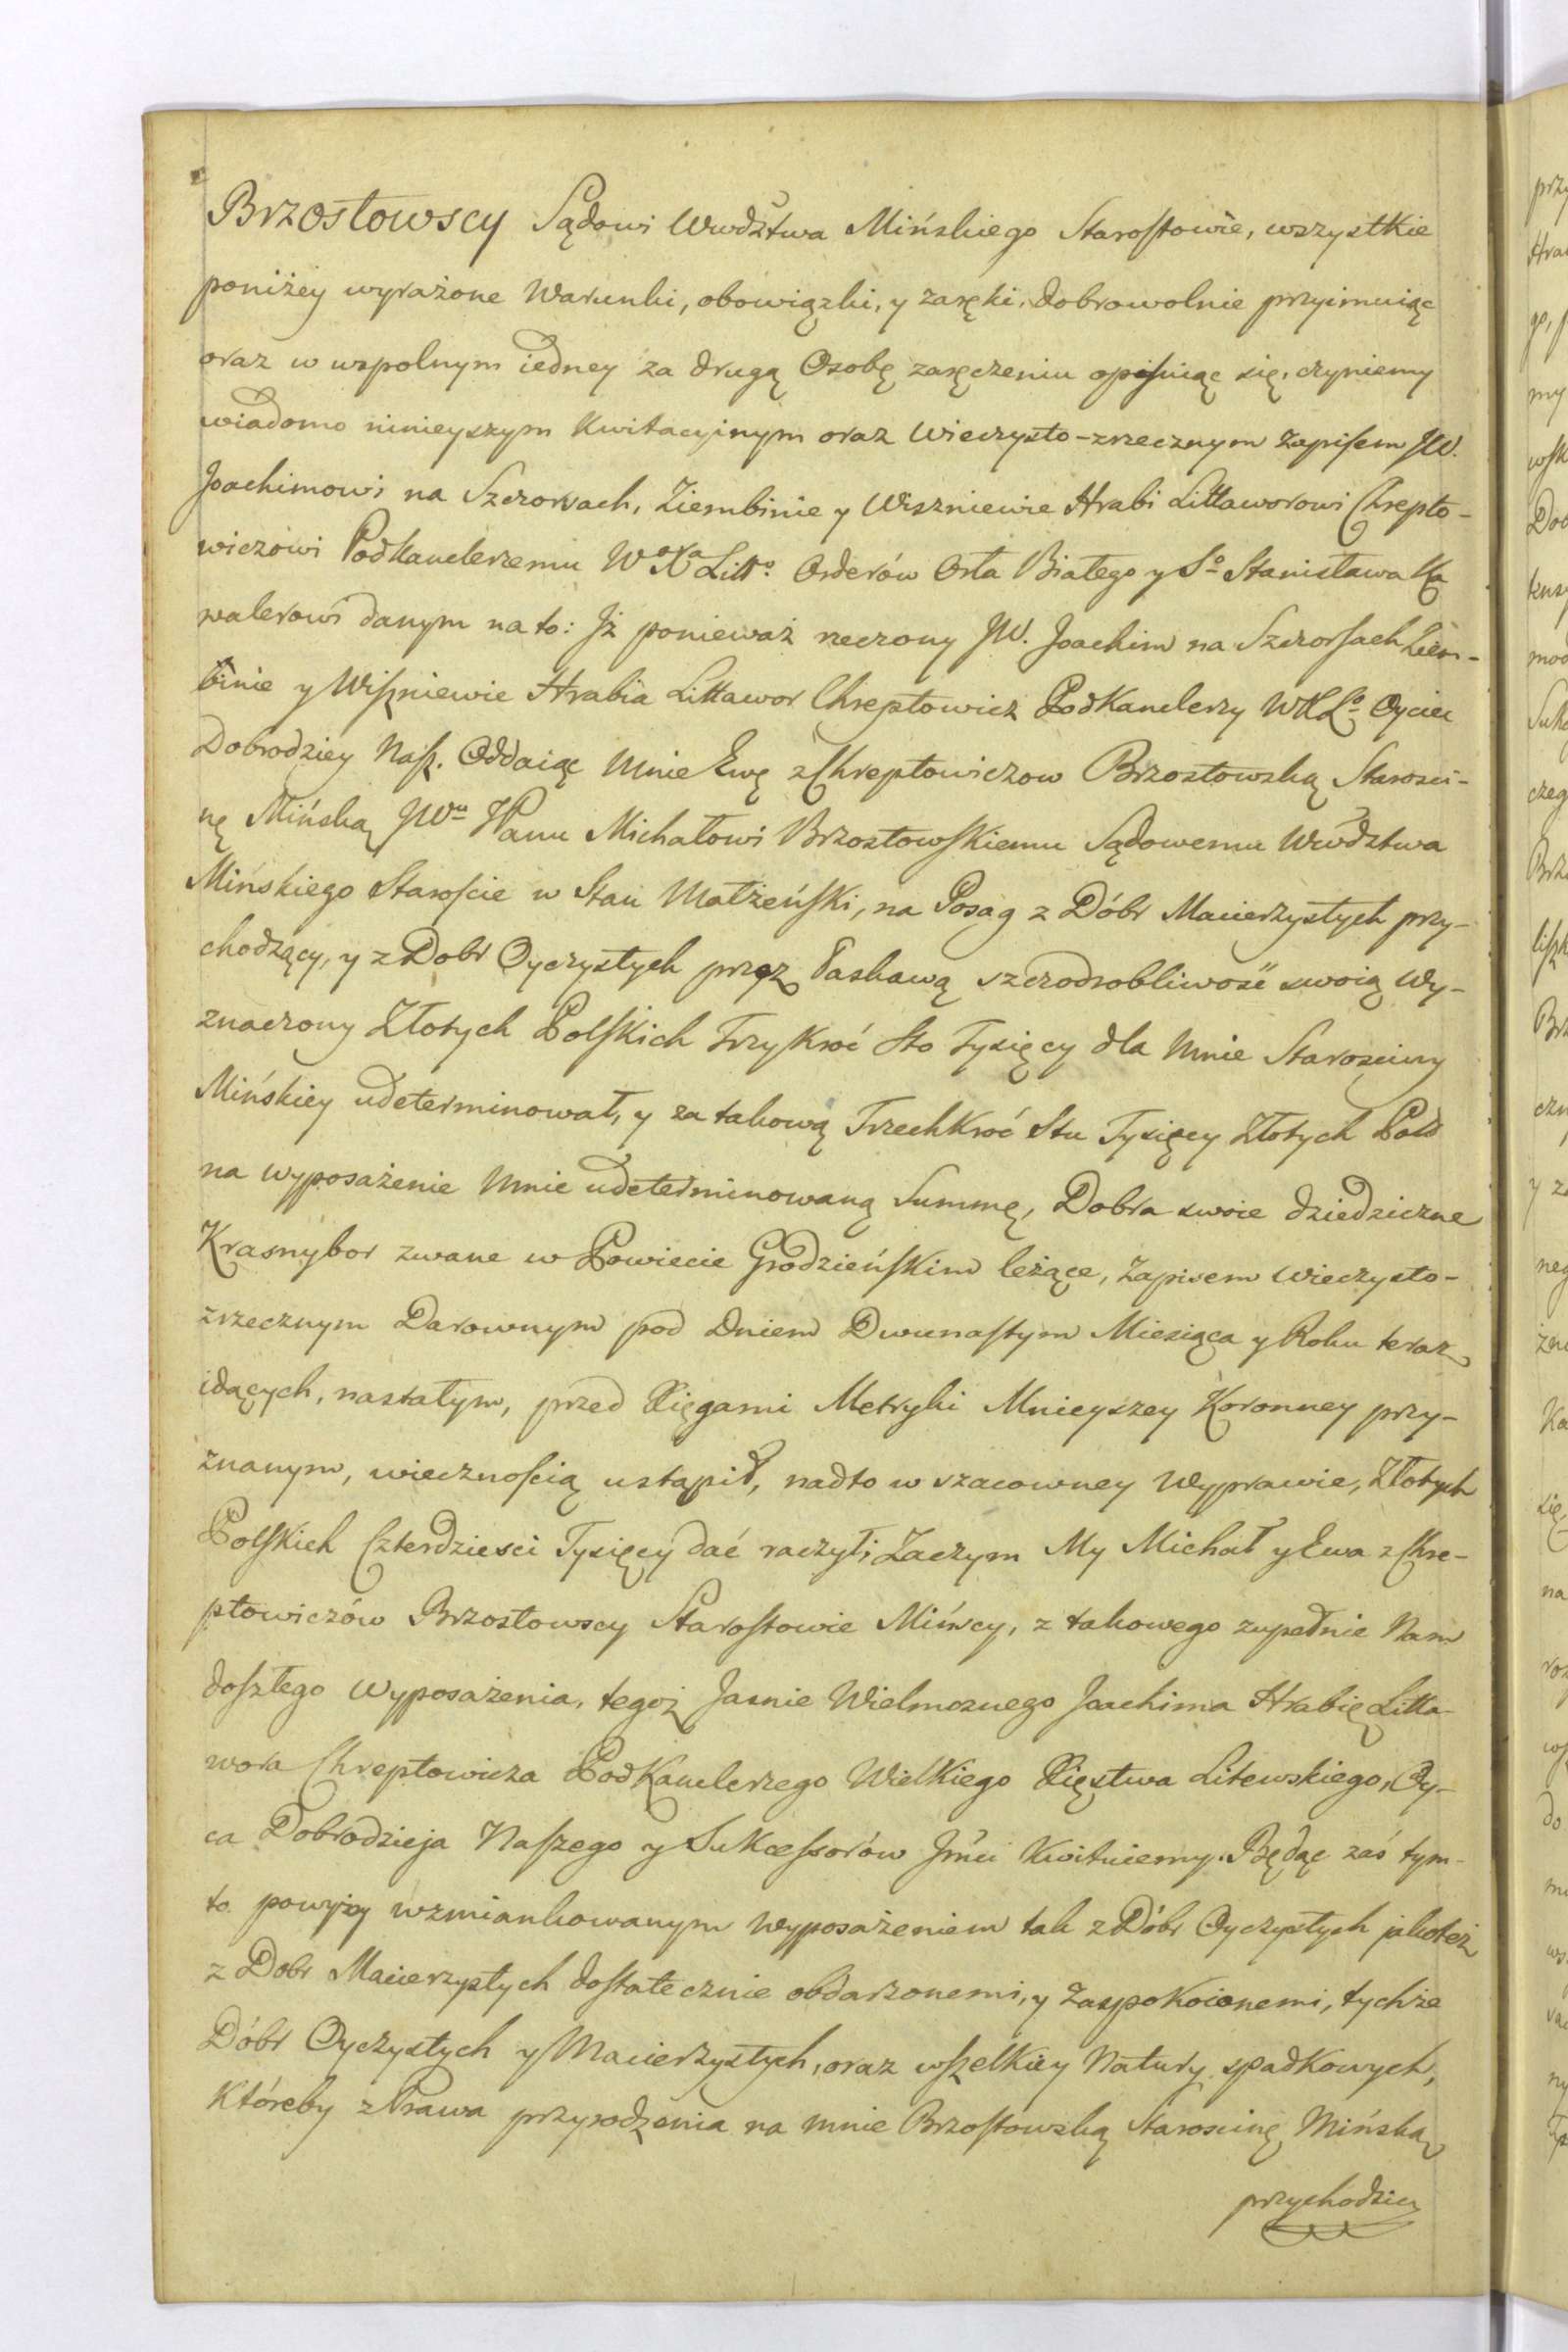 Brzostowscy Sądowi Wwdztwa Mińskiego Starostowie, wszystkie
poniżey wyrażone Warunki, obowiązki, y zaręki, dobrowolnie przyimuiąc
oraz w wspolnym iedney za drugą Osobę zaręczeniu opisuiąc się, czyniemy
wiadomo ninieyszym Kwitacyjnym oraz Wieczysto-zrzecznym Zapisem JW.
Joachimowi na Szczorsach, Ziembinie y Wiszniewie Hrabi Littaworowi Chrepto-
wiczowi Podkanclerzemu Wo Xa Litto. Orderów Orła Białego y So Stanisława Ka
walerowi danym na to: Jż ponieważ rzeczony JW. Joachim na Szczorsach Ziem-
binie y Wiszniewie Hrabia Littawor Chreptowicz PodKanclerzy WXLo Oyciec
Dobrodziey Nasz. Oddaiąc Mnie Ewę z Chreptowiczow Brzostowską Starosci-
nę Mińską JWu Panu Michałowi Brzostowskiemu Sądowemu Wwdztwa
Mińskiego Staroscie w Stan Małżeński, na Posag z Dóbr Macierzystych przy-
chodzący, y z Dobr Oyczystych przez Łaskawą szczodrobliwość swoią wy-
znaczony Złotych Polskich Trzykroć Sto Tysięcy dla Mnie Starosciny
Mińskiey udeterminował, y za takową Trzechkroć Stu Tysięcy Złotych Pols
na wyposażenie Mnie udeterminowaną Summę, Dobra swoie dziedziczne
Krasnybor zwane w Powiecie Grodzieńskim leżące, Zapisem Wieczysto-
zrzecznym Darownym pod Dniem Dwunastym Miesiąca y Roku teraz
idących, nastałym, przed Xięgami Metryki Mnieyszey Koronney przy-
znanym, wiecznością ustąpił, nadto w szacowney Wyprawie, Złotych
Polskich Czterdziesci Tysięcy dać raczył; Zaczym My Michał y Ewa z Chre-
ptowiczów Brzostowscy Starostowie Mińscy, z takowego zupełnie Nam
doszłego Wyposażenia, tegoż Jasnie Wielmoznego Joachima Hrabię Litta-
wora Chreptowicza PodKanclerzego Wielkiego Xięstwa Litewskiego, Oy-
ca Dobrodzieja Naszego y Sukcessorów Jmci Kwituiemy. Będąc zaś tym-
to powyżey wzmiankowanym Wyposażeniem tak z Dóbr Oyczystych jakoteż
z Dobr Macierzystych dostatecznie obdarzonemi, y Zaspokoionemi, tychże
Dóbr Oyczystych y Macierzystych, oraz wszelkiey Natury spadkowych,
Któreby z Prawa przyrodzenia na mnie Brzostowską Staroscinę Mińską
przychodzić